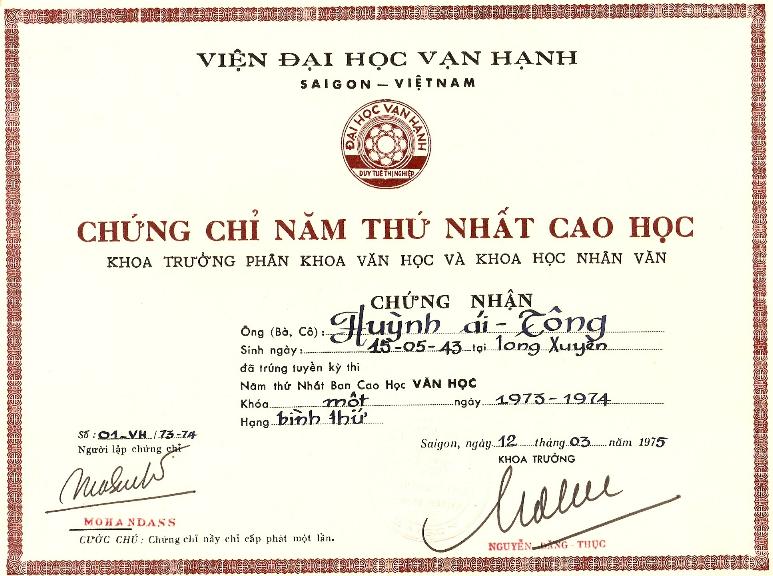 VIỆN ĐẠI HỌC VẠN HẠNH
SAIGON – VIỆTNAM
ĐẠI HỌC VẠN HẠNH
DUY TUỆ THỊ NGHIỆP
CHỨNG CHỈ NĂM THỨ NHẤT CAO HỌC
KHOA TRƯỞNG PHÂN KHOA VĂN HỌC VÀ KHOA HỌC NHÂN VĂN
CHỨNG NHẬN
Ông (Bà, Cô) : Huỳnh ái - Tông
Sinh ngày : 15-05-43 tại Long Xuyên
đã trúng tuyển kỳ thi
Năm thứ Nhất Ban Cao Học VĂN HỌC
Khóa một ngày 1973-1974
Hạng bình thứ
Số : 01-VH / 73-74
Người lập chứng chỉ
Saigon, ngày 12 tháng 03 năm 1975
KHOA TRƯỞNG
MOHANDASS
NGUYỄN ĐĂNG THỤC
CƯỚC CHÚ : Chứng chỉ nầy chỉ cấp phát một lần.